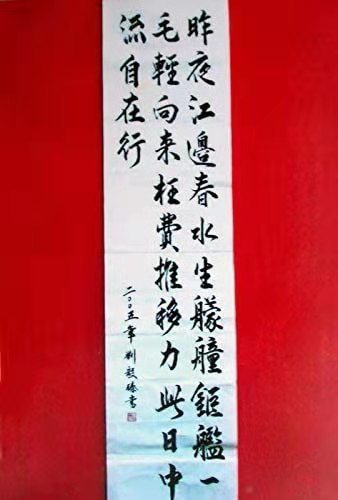 昨夜江邊春水生艨艟鉅艦一
毛輕向来枉費推移力此日中
流自在行
二〇〇五年